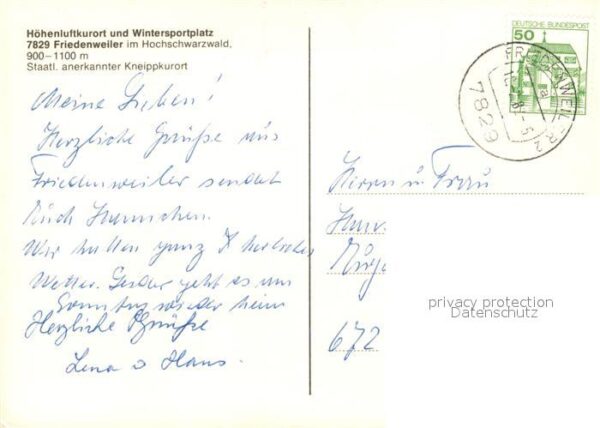 Höhenluftkurort und Wintersportplatz
7829 Friedenweiler im Hochschwarzwald,
900–1100 m
Staatl. anerkannter Kneippkurort
Meine Lieben!
Herzliche Grüße aus
Friedenweiler sendet
Euch
Wir hatten ganz herrliches
Wetter. Leider geht es am
Sonntag wieder heim
Herzliche Grüße
Lena u Hans.
50
DEUTSCHE BUNDESPOST
FRIEDENWEILER 2
7829
Herrn u. Frau
672
privacy protection
Datenschutz